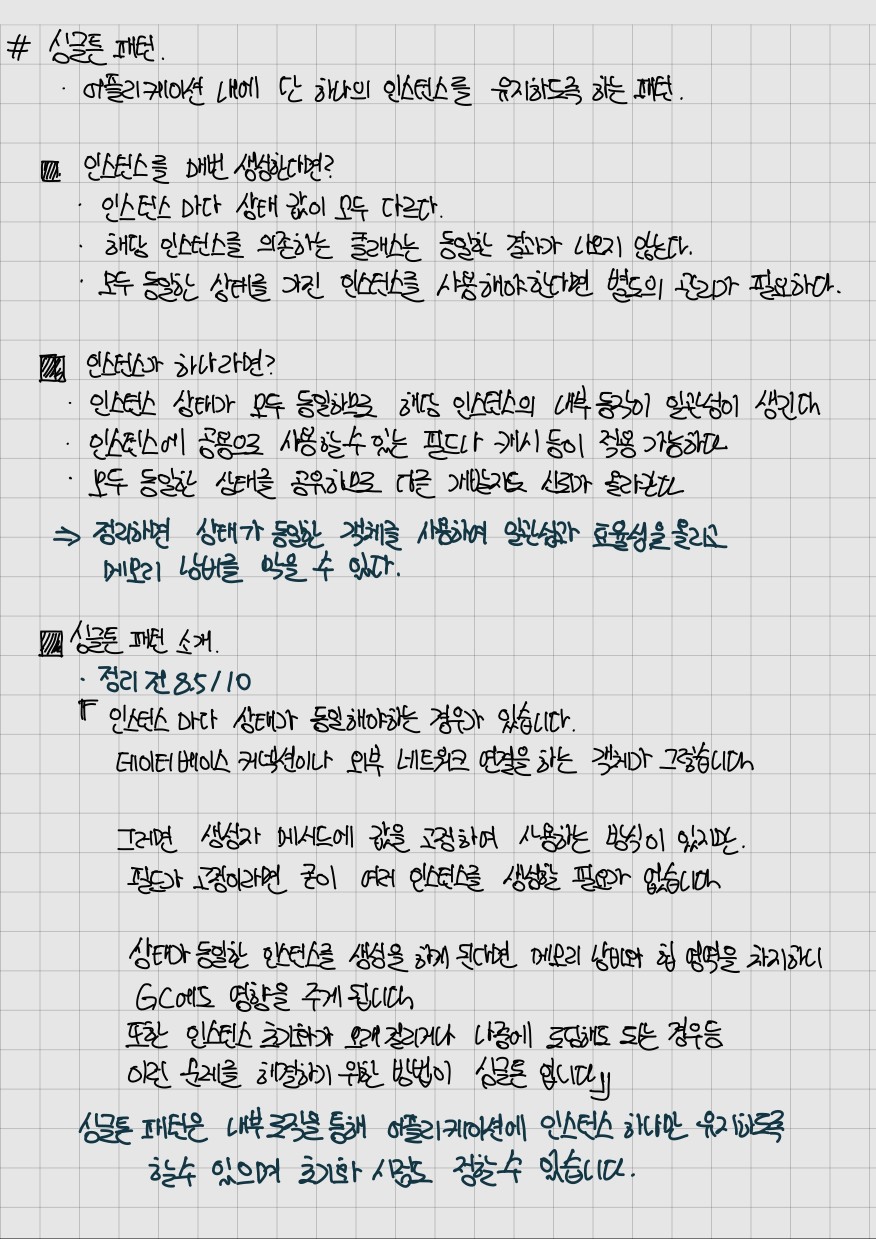 # 싱글톤 패턴.
· 어플리케이션 내에 단 하나의 인스턴스를 유지하도록 하는 패턴.
인스턴스를 매번 생성한다면?
· 인스턴스 마다 상태 값이 모두 다르다.
· 해당 인스턴스를 의존하는 클래스는 동일한 결과가 나오지 않는다.
· 모두 동일한 상태를 가진 인스턴스를 사용해야한다면 별도의 관리가 필요하다.
인스턴스가 하나라면?
· 인스턴스 상태가 모두 동일하므로 해당 인스턴스의 내부 동작이 일관성이 생긴다
· 인스턴스에 공용으로 사용할 수 있는 필드나 캐시 등이 적용 가능하다
· 모두 동일한 상태를 공유하므로 다른 개발자도 신뢰가 올라간다
⇒ 정리하면 상태가 동일한 객체를 사용하여 일관성과 효율성을 올리고
메모리 낭비를 막을 수 있다.
싱글톤 패턴 소개.
· 정리 전 8.5/10
『 인스턴스 마다 상태가 동일해야하는 경우가 있습니다.
데이터베이스 커넥션이나 외부 네트워크 연결을 하는 객체가 그렇습니다
그러면 생성자 메서드에 값을 고정하여 사용하는 방식이 있지만.
필드가 고정이라면 굳이 여러 인스턴스를 생성할 필요가 없습니다
상태가 동일한 인스턴스를 생성을 하게 된다면 메모리 낭비와 힙 영역을 차지하니
GC에도 영향을 주게 됩니다
또한 인스턴스 초기화가 오래 걸리거나 나중에 로딩해도 되는 경우등
이런 문제를 해결하기 위한 방법이 싱글톤 입니다』
싱글톤 패턴은 내부 로직을 통해 어플리케이션에 인스턴스 하나만 유지하도록
할 수 있으며 초기화 시점도 정할 수 있습니다.